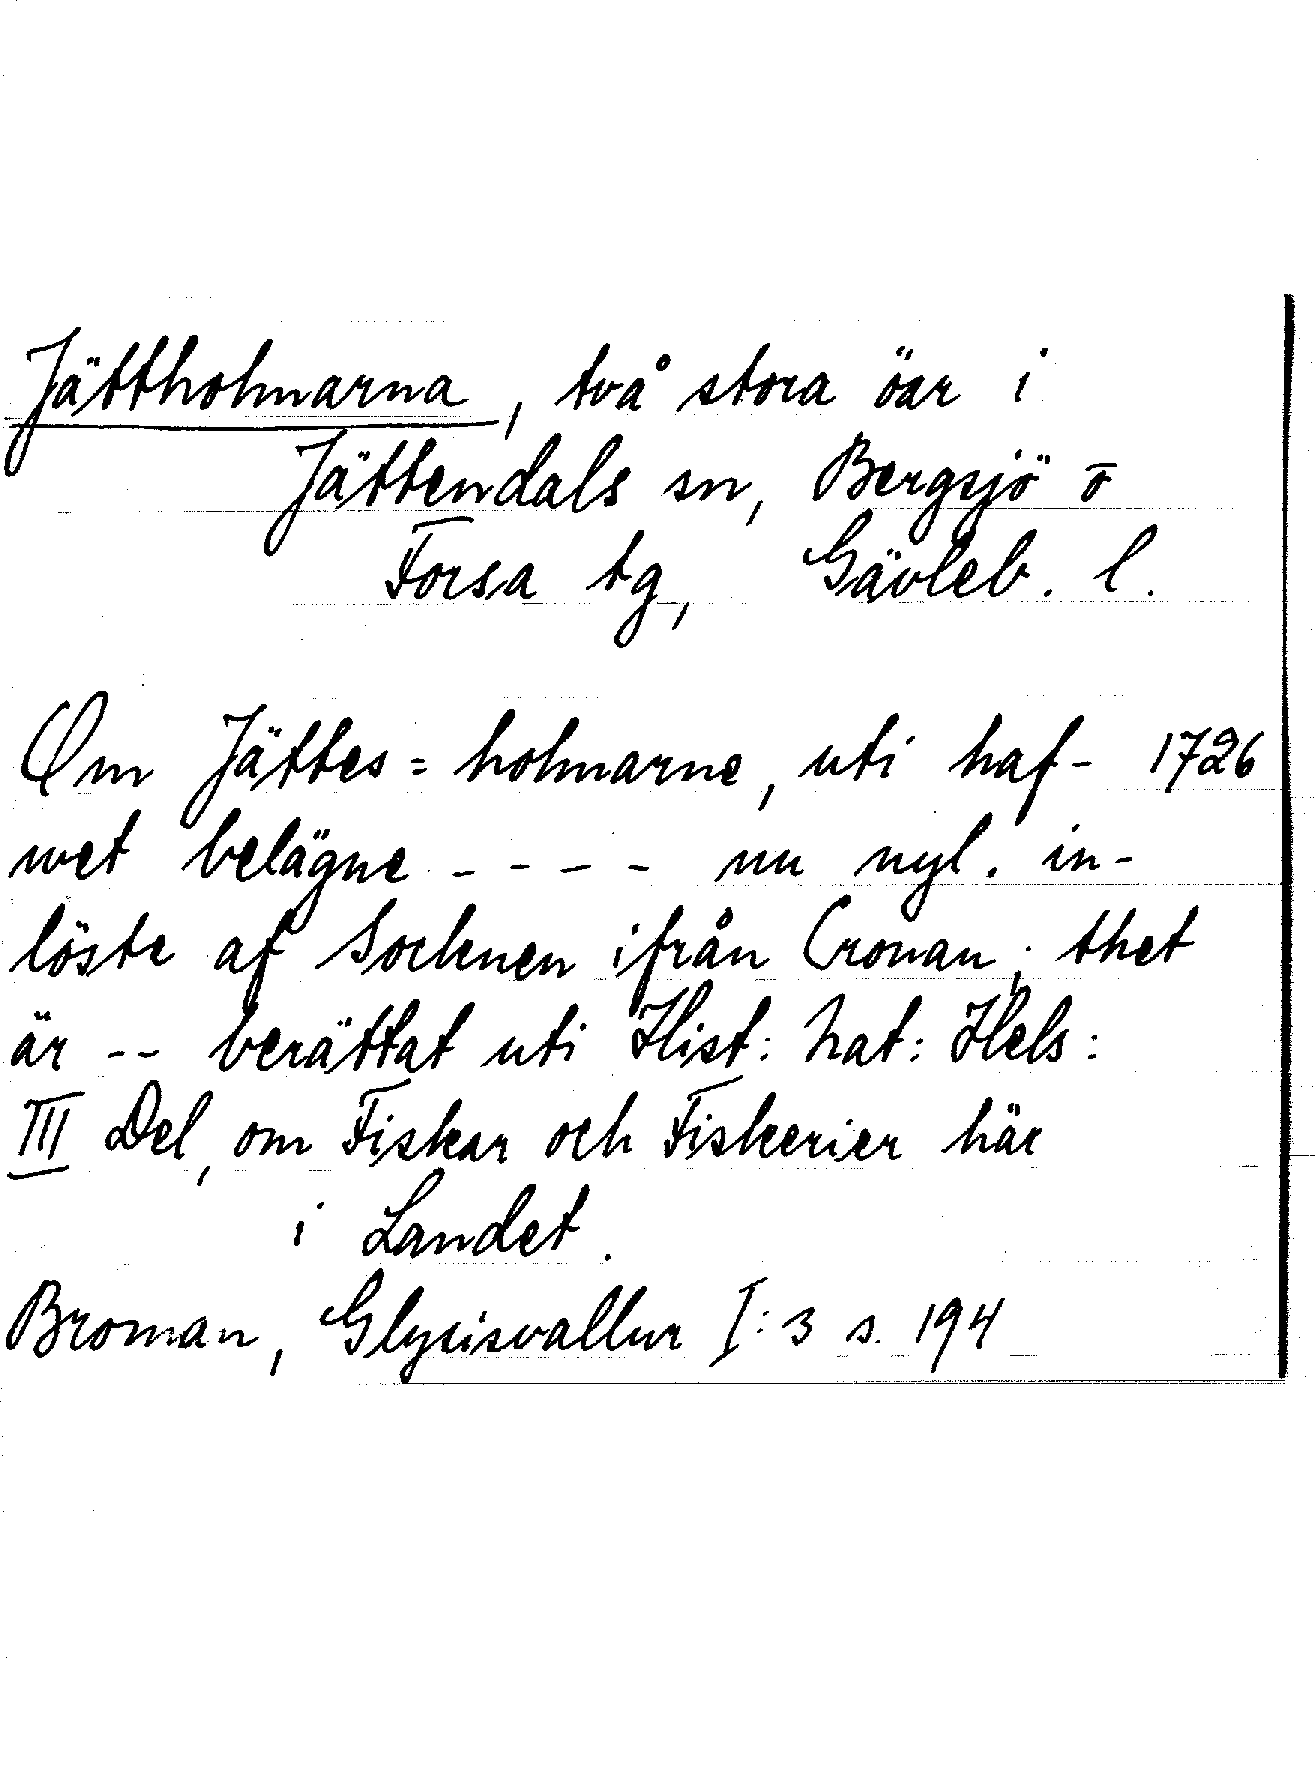 Jättholmarna, två stora öar i
Jättendals sn, Bergsjö o
Forsa tg, Gävleb. l.
Om Jättes=holmarne, uti haf- 1726
wet belägne - - - - nu nyl. in-
löste af Socknen ifrån Cronan; thet
är -- berättat uti Hist: nat: Hels:
III Del, om Fiskar och Fiskerier här
i Landet.
Broman, Glysisvallur I:3 s. 194